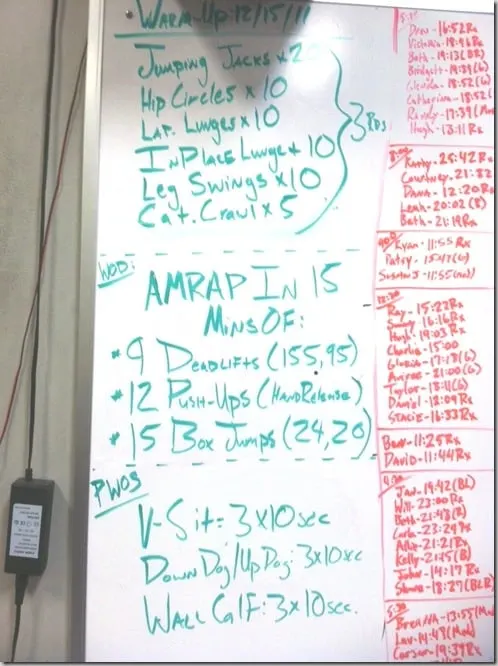 WARM-UP: 12/15/11
JUMPING JACKS x 20
Hip CircleS x 10
LAT. LUNGES x 10
IN PLACE LUNGE x 10
LEG SWINGS x 10
CAT. CRAWL x 5
3 RDS
WOD:
AMRAP IN 15
MINS OF:
* 9 DEADLIFTS (155, 95)
* 12 PUSH-UPS (HAND RELEASE)
* 15 BOX JUMPS (24, 20)
PWOS
V-Sit: 3x10sec
DOWN DOG/UP DOG: 3x10sec
WALL CALF: 3x10sec.
Drew - 16:52 Rx
Victoria - 18:46 Rx
Beth - 19:13 (BR)
Bridgett - 19:39 (G)
Glenda - 18:52 (G)
Catherine - 18:52
Hugh - 13:11 Rx
Kathy - 25:42 Rx
Courtney - 21:32
Dana - 12:20 Rx
Leah - 20:02 (B)
Beth - 21:19 Rx
Ryan - 11:55 Rx
Patsy - 15:47 (G)
Susan J - 11:55 (Mod)
12:30
Ray - 15:22 Rx
16:16 Rx
Hugh - 19:03 Rx
Charlie - 15:00
Gloria - 17:18 (G)
21:00 (G)
Taylor - 18:11 (G)
Daniel - 18:09 Rx
STACIE - 16:33 Rx
Bear - 11:25 Rx
DAVID - 11:44 Rx
4:30
Jan - 19:42 (BL)
Will - 23:00 Rx
Beth - 21:43 (B)
Carla - 23:29 Rx
Allie - 21:21 Rx
Kelly - 21:15 (B)
John - 14:17 Rx
Shane - 18:27 (BLR)
5:30
BreANNA - 13:55 (Mod)
Lau - 14:48 (Mod)
Carson - 19:39 Rx